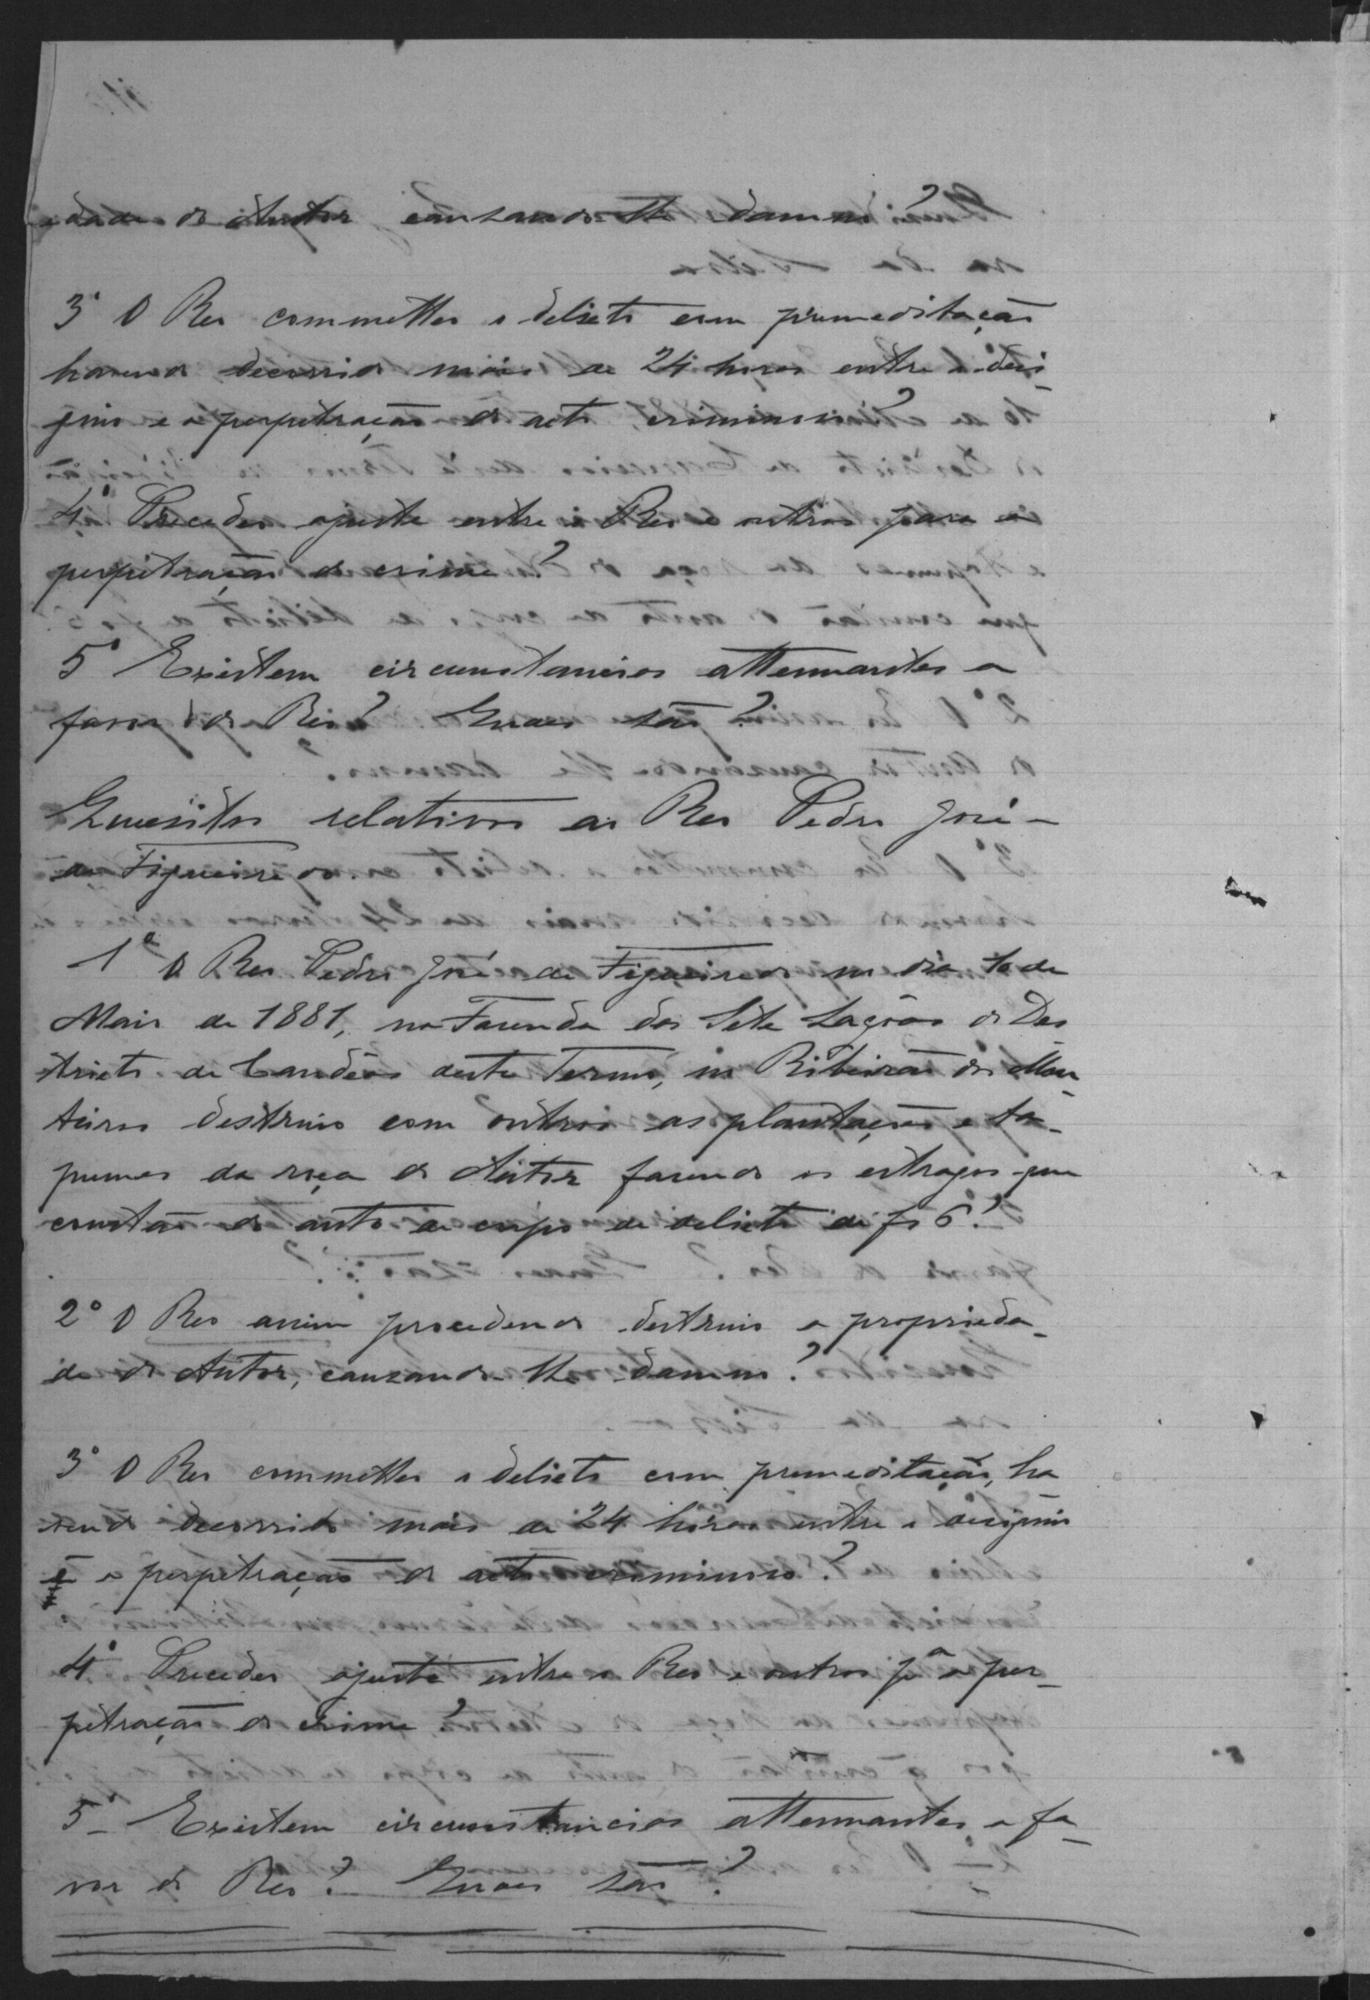 edade do Autor causando-lhe damno?
3º O Reo commetteo o delicto com premeditação
havendo decorrido mais de 24 horas entre o desi-
gnio e a perpetração do acto criminoso?
4º Precedeo ajuste entre o Reo e outros para a
perpetração do crime?
5º Existem circunstancias attenuantes a
favor do Reo? Quaes são?
Quesitos relativos ao Reo Pedro José
de Figueiredo.
1º O Reo Pedro José de Figueiredo no dia 10 de
Maio de 1881, na Fazenda das Sete Lagôas do Des
tricto de Candêas deste Termo, no Ribeirão dos Mon
teiros destruio com outros as plantações e ta-
pumes da roça do Autor fazendo os estragos que
constão do auto de corpo de delicto de fs 6?
2º O Reo assim procedendo destruio a proprieda-
de do Autor, causando-lhe damno?
3º O Reo commetteo o delicto com premeditação, ha
vendo decorrido mais de 24 horas entre o designio
e a perpetração do acto criminoso?
4º Precedeo ajuste entre o Reo e outros pª a per-
petração do crime?
5º Existem circumstancias attenuantes a fa-
vor do Reo? Quaes são?